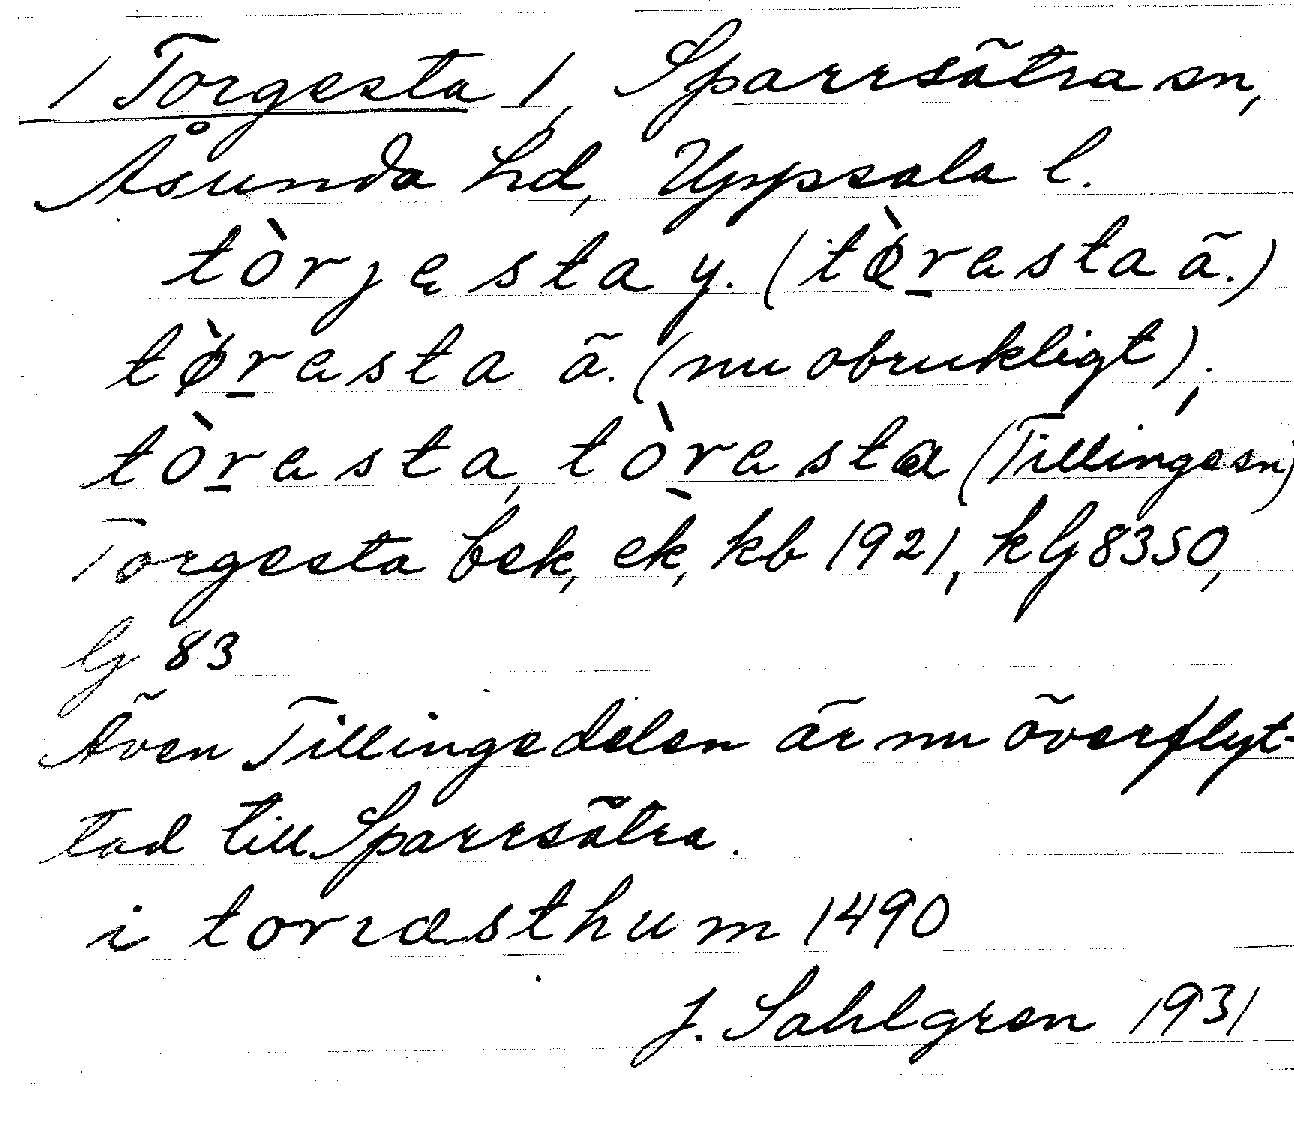 / Torgesta /, Sparrsätra sn,
Åsunda hd, Uppsala l.
tòrjesta y. (tø̀resta ä.)
tø̀resta ä. (nu obrukligt),;
tòresta, tòresta (Tillinge sn)
Torgesta bek, ek, kb 1921, kG 8350,
G 83
Även Tillingedelen är nu överflyt-
tad till Sparrsätra.
i toriæsthum 1490
J. Sahlgren 1931